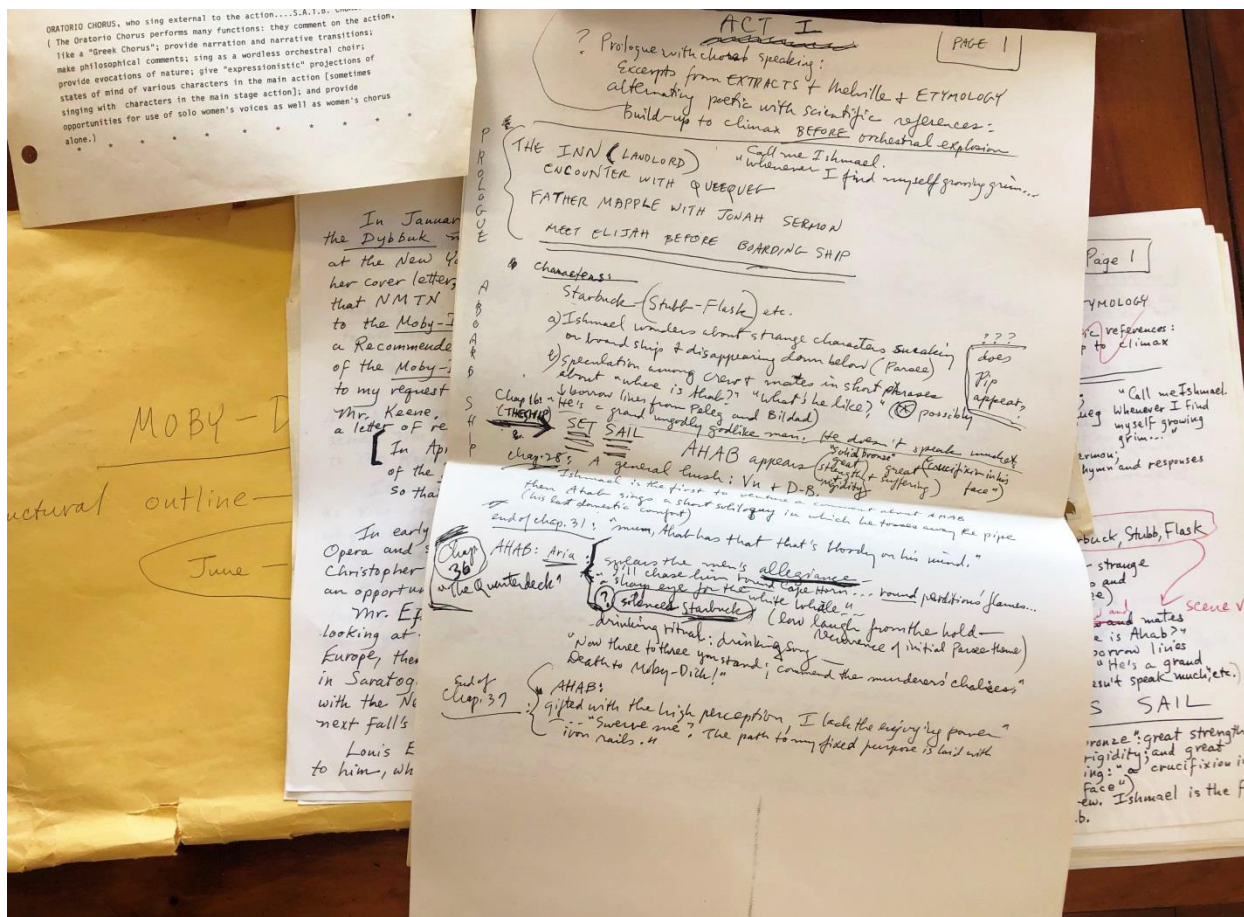 ORATORIO CHORUS, who sing external to the action....S.A.T.B.
( The Oratorio Chorus performs many functions: they comment on the action,
like a "Greek Chorus"; provide narration and narrative transitions;
make philosophical comments; sing as a wordless orchestral choir;
provide evocations of nature; give "expressionistic" projections of
states of mind of various characters in the main action [sometimes
singing with characters in the main stage action]; and provide
opportunities for use of solo women's voices as well as women's chorus
alone.)
* * * * * * * *
MOBY-D
uctural outline-
June-
In Januar
the Dybbuk
at the New Yo
her cover letter,
that NMTN
to the Moby-D
a Recommende
of the Moby-
to my request
Mr. Keene,
a letter of re
In Apr
of the
so tha
In early
Opera and s
Christopher
an opportun
Mr. Ef
looking at
Europe, the
in Saratog
with the Ne
next fall's
Louis E
to him, wh
ACT I
PAGE 1
? Prologue with chorus speaking:
Excerpts from EXTRACTS & Melville & ETYMOLOGY
alternating poetic with scientific references:
Build-up to climax BEFORE orchestral explosion
PROLOGUE
THE INN (LANDLORD)
"Call me Ishmael.
"Whenever I find myself growing grim...
ENCOUNTER WITH QUEEQUEG
FATHER MAPPLE WITH JONAH SERMON
MEET ELIJAH BEFORE BOARDING SHIP
ABOARD SHIP
Characters:
Starbuck-(Stubb-Flask) etc.
a) Ishmael wonders about strange characters sneaking
on board ship & disappearing down below (Parsee)
b) Speculation among crew & mates in short phrases
about "where is Ahab?" "What's he like?" possibly
borrow lines from Peleg and Bildad)
???
does
Pip
appear?
Chap 16: "He's a grand ungodly godlike man. He doesn't speak much etc
(THE SHIP)
SET SAIL
AHAB appears
"solid bronze"
(great strength & rigidity
great suffering)
(crucifixion in his face")
chap. 28: A general hush: Vn & D-B.
Ishmael is the first to venture a comment about AHAB
then Ahab sings a short soliloquy in which he tosses away the pipe
(his last domestic comfort)
end of chap. 31: "mum, Ahab has that that's bloody on his mind."
Chap
36
"The Quarterdeck"
AHAB: Aria:
the men's allegiance-
I'll chase him round Cape Horn... round perditions' flames...
a sharp eye for the white whale"
? silences Starbuck (low laugh from the hold-
recurrence of initial Parsee theme)
drinking ritual: drinking song
"Now three to three you stand; commend the murderers' chalices"
Death to Moby-Dick!"
End of
Chap. 37
AHAB:
gifted with the high perception, I lack the enjoying power"
..."Swerve me? The path to my fixed purpose is laid with
iron rails."
Page 1
TYMOLOGY
ic references:
p to climax
"Call me Ishmael.
ueg Whenever I find
myself growing
grim..."
ermon;
hymn and responses
rbuck, Stubb, Flask
strange
and
ee)
and mates
scene
e is Ahab?"
borrow lines
"He's a grand
esn't speak much, etc.)
S SAIL
bronze": great strength
rigidity; and great
ing: "a crucifixion in
face")
ew. Ishmael is the f
b.